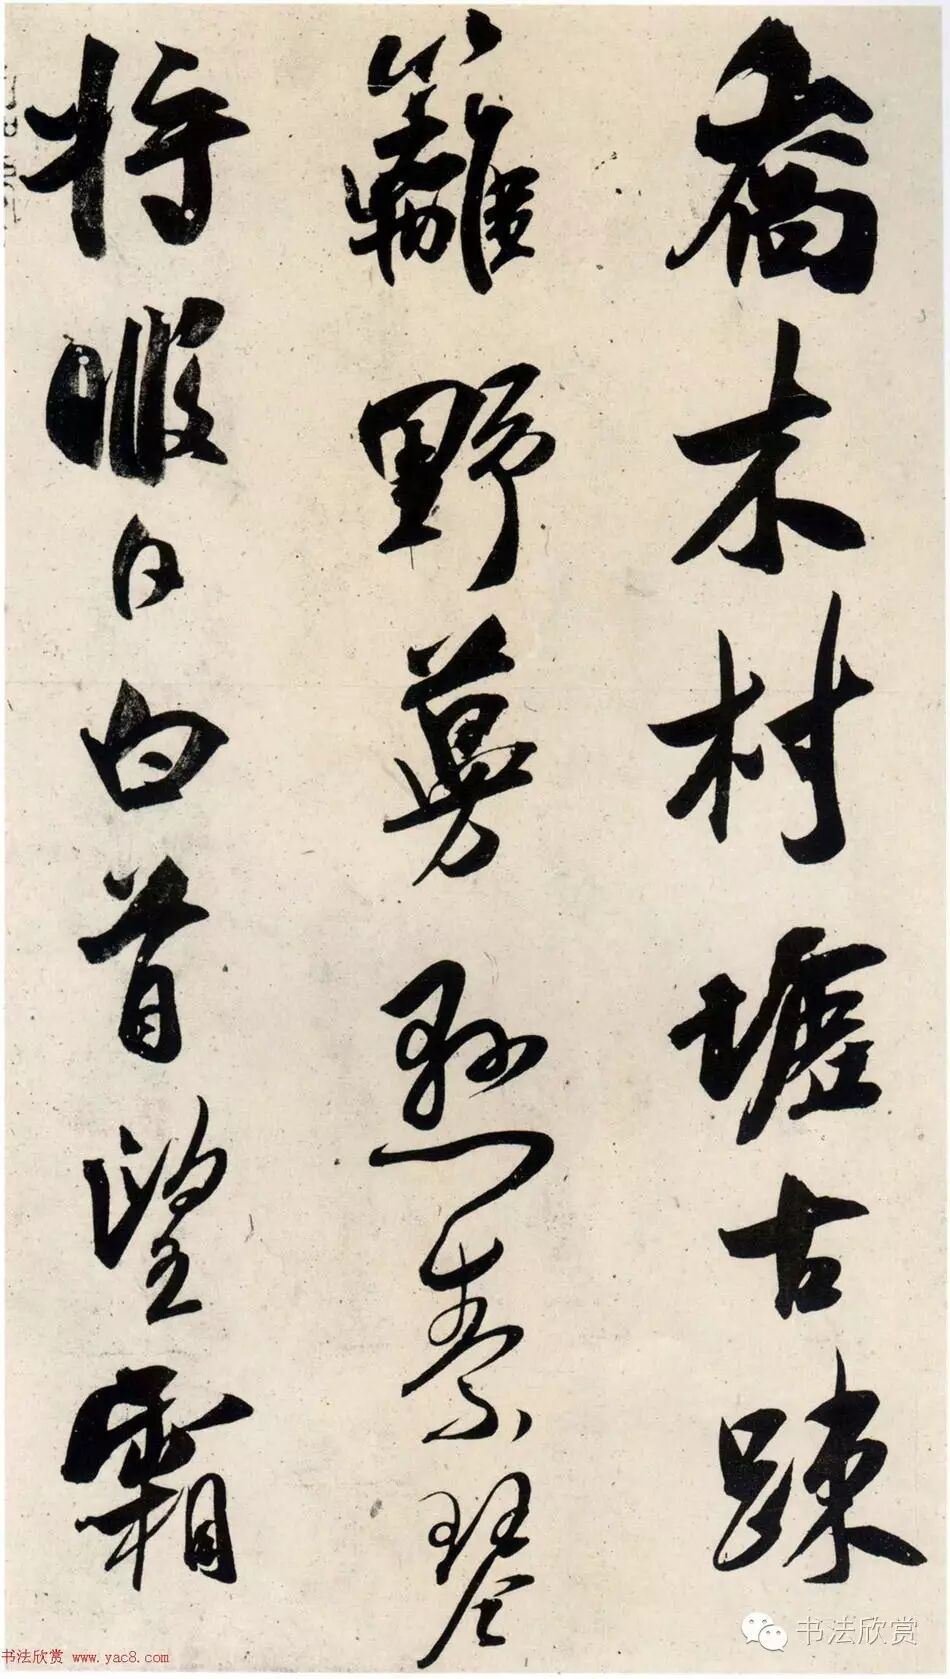 喬木村墟古踈
籬野蔓懸素琴
將暇日白首望霜
书法欣赏
书法欣赏 www.yac8.com